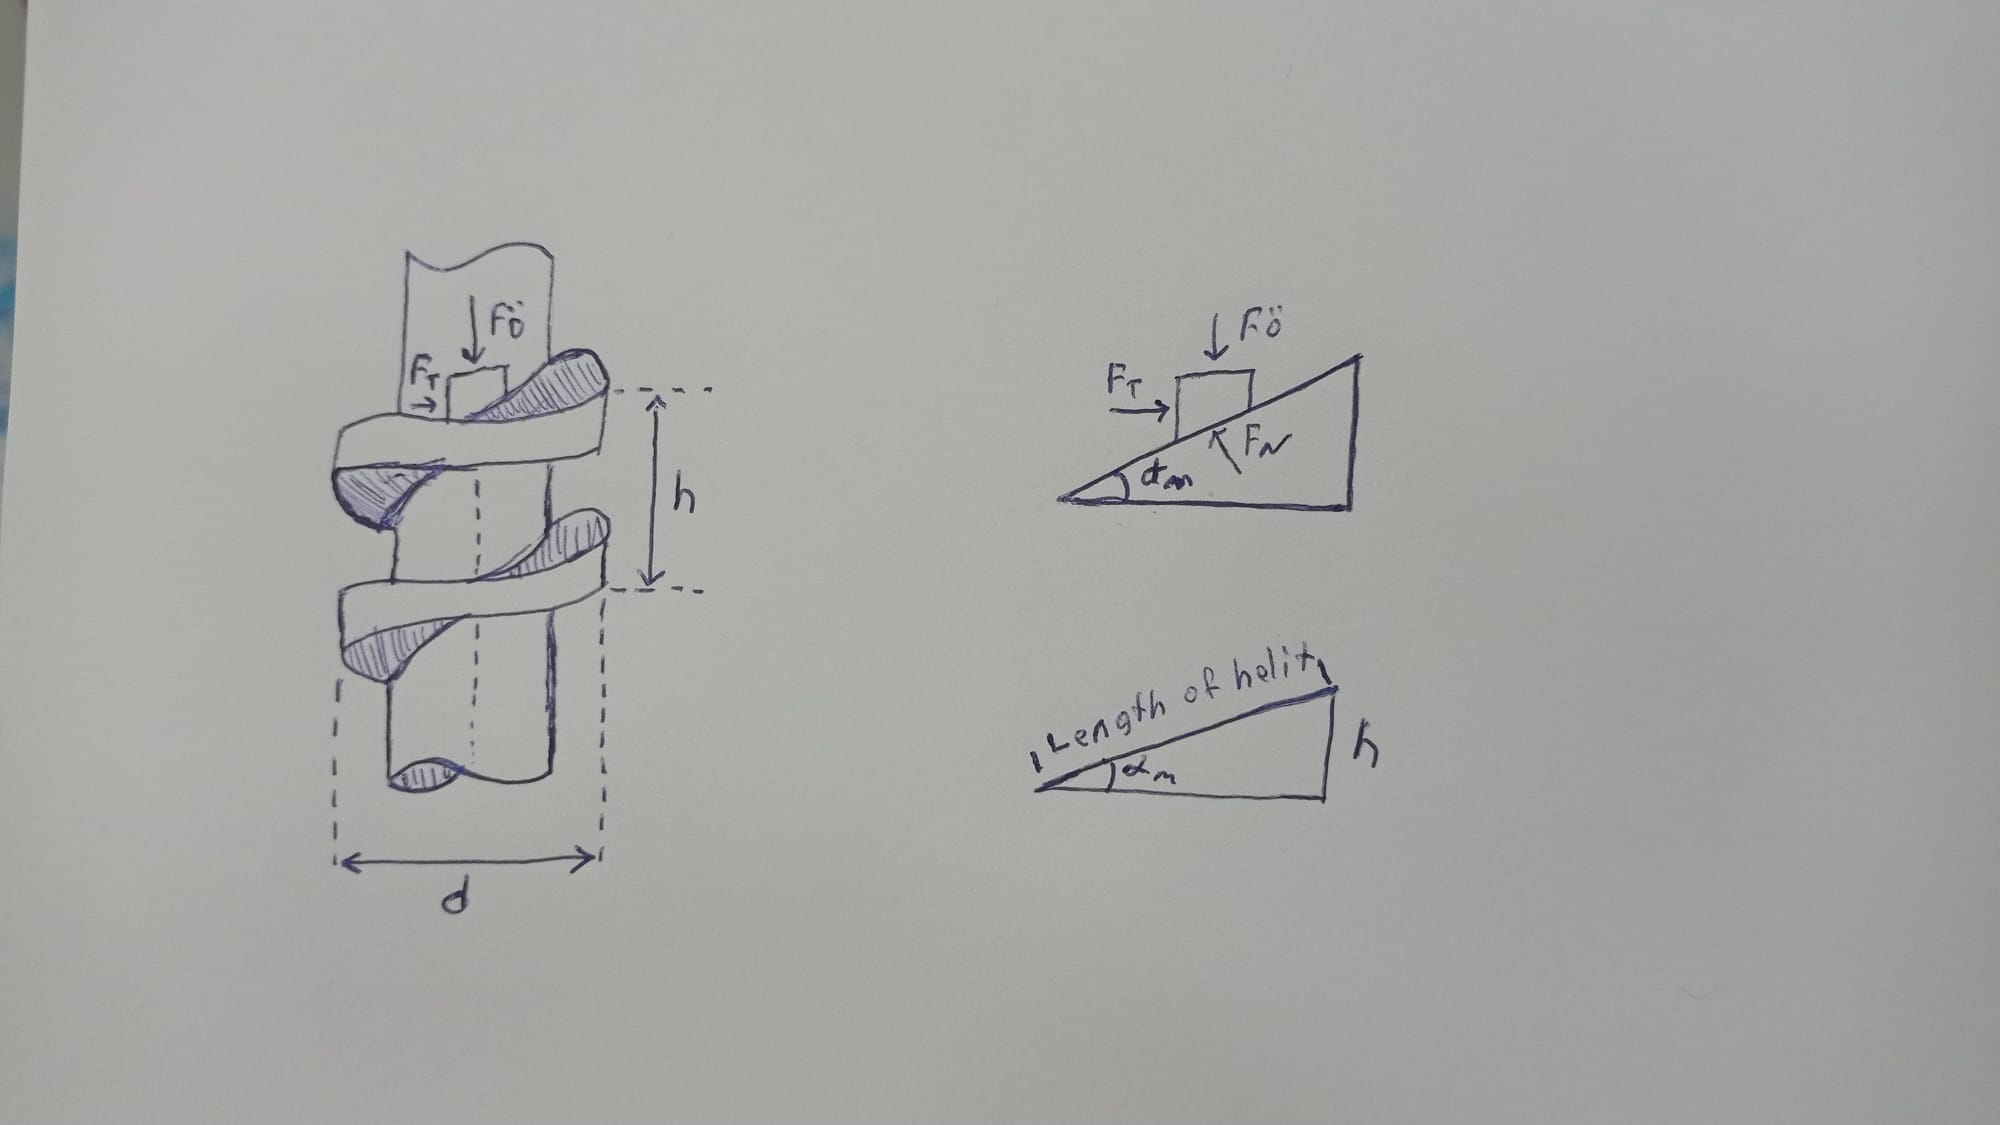 Fö
FT
h
d
Fö
FT
FN
αm
Length of helix
h
αm